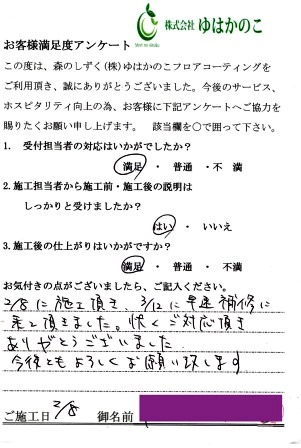 株式会社 ゆはかのこ
お客様満足度アンケート
この度は、森のしずく(株)ゆはかのこフロアコーティングを
ご利用頂き、誠にありがとうございました。今後のサービス、
ホスピタリティ向上の為、お客様に下記アンケートへご協力を
賜りたくお願い申し上げます。 該当欄を○で囲って下さい。
1. 受付担当者の対応はいかがでしたか?
満足 ・ 普通 ・ 不満
2. 施工担当者から施工前・施工後の説明は
しっかりと受けましたか?
はい ・ いいえ
3. 施工後の仕上がりはいかがですか?
満足 ・ 普通 ・ 不満
お気付きの点がございましたら、ご記入ください。
2/8に施工頂き、3/12に早速補修に
来て頂きました。快くご対応頂き
ありがとうございました
今後ともよろしくお願い致します
ご施工日 2/8 御名前